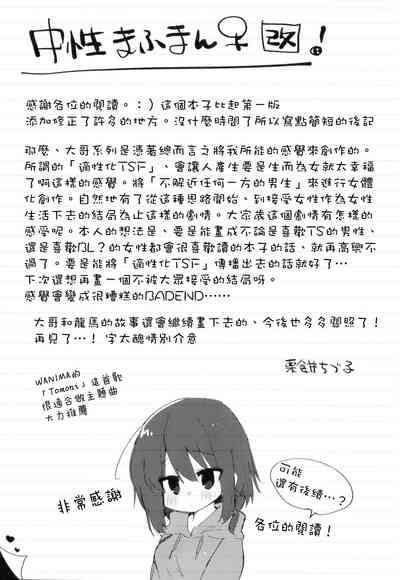 中性まふまん♀ 改!
感謝各位的閱讀。:)這個本子比起第一版
添加修正了許多的地方。沒什麼時間了所以寫點簡短的後記
那麼、大哥系列是憑著總而言之將我所能的感覺來創作的。
所謂的「適性化TSF」、會讓人產生要是生而為女就太幸福
了啊這樣的感覺。將「不解近任何一方的男生」來進行女體
化創作。自然地有了從這種思路開始、到接受女性作為女性
生活下去的結局為止這樣的劇情。大家感這個劇情有怎樣的
感受呢。本人的想法是、要是能畫成不論是喜歡TS的男性、
還是喜歡BL?的女性都會很喜歡讀的本子的話、就再高興不
過了。要是能將「適性化TSF」傳播出去的話就好了…
下次還想再畫一個不被大眾接受的結局呀。
感覺會變成很糟糕的BADEND……
大哥和龍馬的故事還會繼續畫下去的、今後也多多關照了!
再見了…! 字太醜情別介意
栗餅ちづ子
WANIMA的
「Tomoni」這首歌
很適合做主題曲
大力推薦
非常感謝
可能
還有後續…?
各位的閱讀!